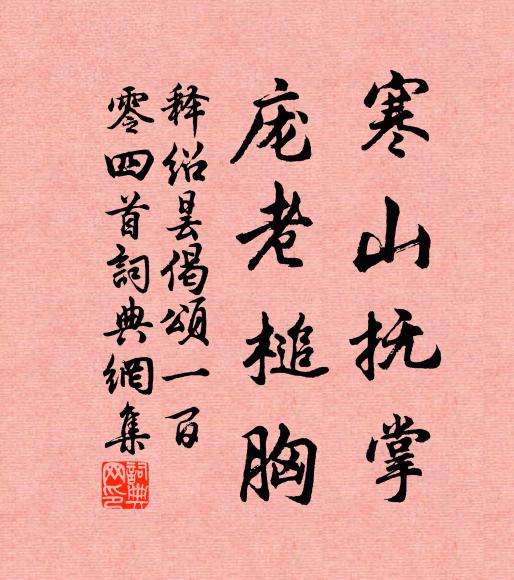 寒山抚掌
庞老槌胸
释绍昙偈頌一百
零四首詞典網集
詞典网印